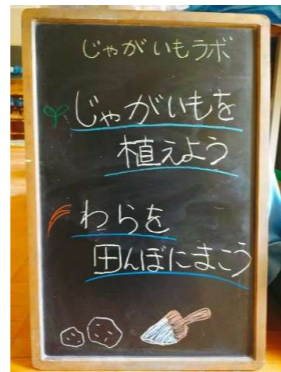 じゃがいもラボ
じゃがいもを
植えよう
わらを
田んぼにまこう